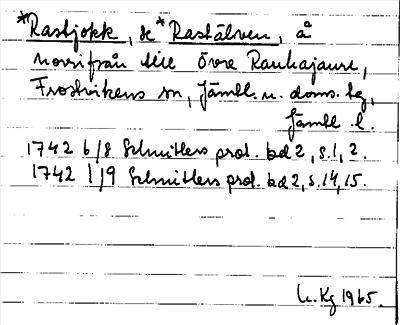 *Rastjokk, se *Rastälven, å
norrifrån till Övre Rauhajaure,
Frostvikens sn, Jämtl. n. doms. tg,
Jämtl. l.
1742 6/8 Schnitlers prot. bd 2, s. 1, 2.
1742 1/9 Schnitlers prot. bd 2, s. 14, 15.
Kg 1965.